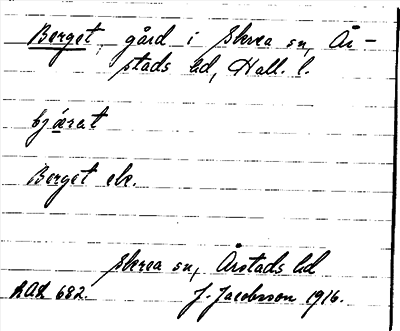 Berget, gård i Skrea sn, År-
stads hd, Hall. l.
bj
Berget ek.
Skrea sn, Årstads hd
682. J. Jacobsson 1916.